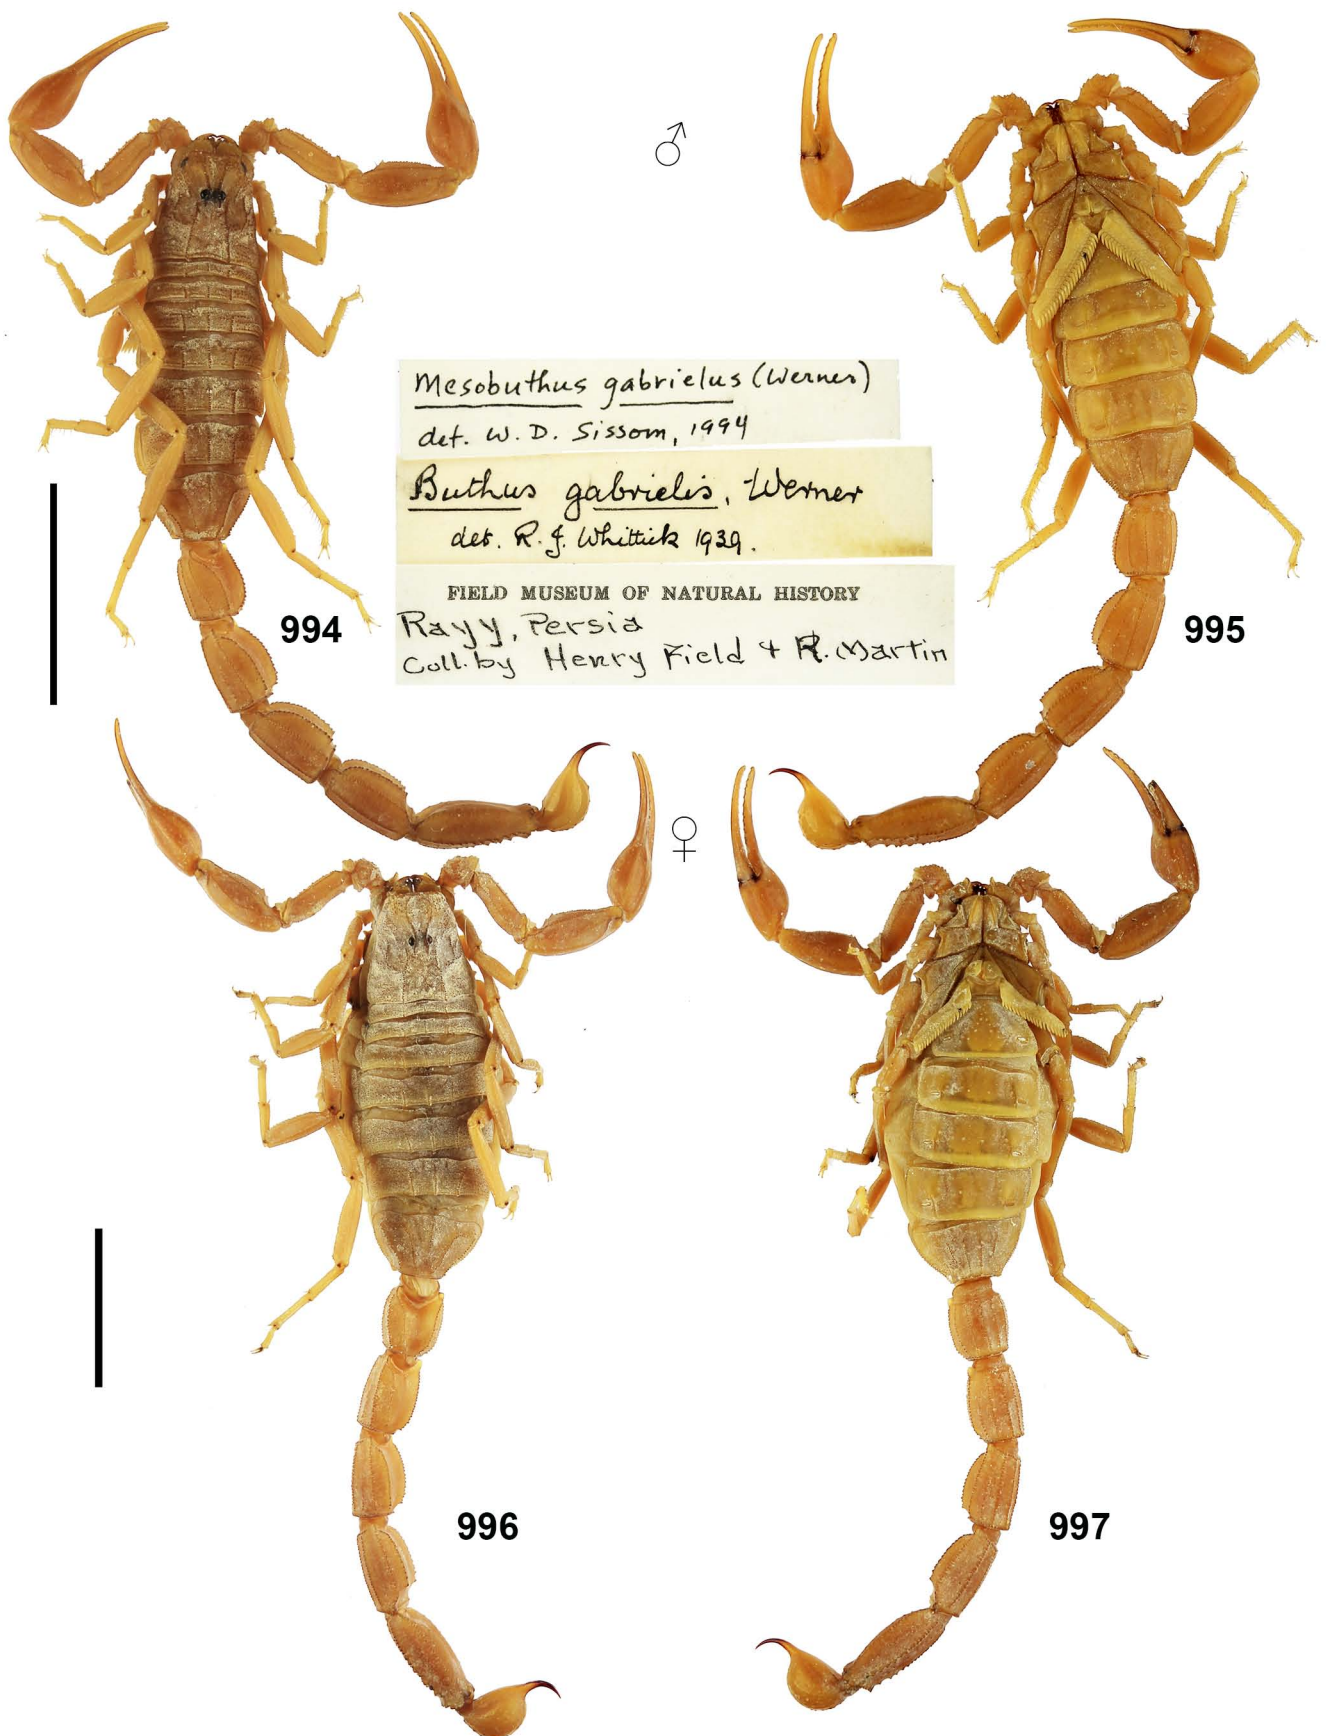 ♂
Mesobuthus gabrielus (Werner)
det. W. D. Sissom, 1994
Buthus gabrielis, Werner
det. R. J. Whittick 1939.
FIELD MUSEUM OF NATURAL HISTORY
Rayy, Persia
Coll. by Henry Field + R. Martin
994
995
♀
996
997